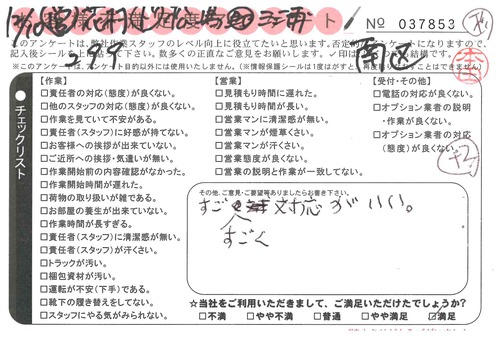 № 037853
このアンケートは、弊社作業スタッフのレベル向上に役立てたいと思います。否定的なアンケートになりますので、
記入後シール
数多くの正直なご意見をお願いします。
※このアンケートは、アンケート目的以外には使用いたしません。(※情報保護シールは1度はがすと
南区
+2
チェックリスト
【作業】
□責任者の対応(態度)が良くない。
□他のスタッフの対応(態度)が良くない。
□作業を見ていて不安がある。
□責任者(スタッフ)に好感が持てない。
□お客様への挨拶が出来ていない。
□ご近所への挨拶・気遣いが無い。
□作業開始前の内容確認がなかった。
□作業開始時間が遅れた。
□荷物の取り扱いが雑である。
□お部屋の養生が出来ていない。
□作業時間が長すぎる。
□責任者(スタッフ)に清潔感が無い。
□責任者(スタッフ)が汗くさい。
□トラックが汚い。
□梱包資材が汚い。
□運転が不安(下手)である。
□靴下の履き替えをしてない。
□スタッフにやる気がみられない。
【営業】
□見積もり時間に遅れた。
□見積もり時間が長い。
□営業マンに清潔感が無い。
□営業マンが煙草くさい。
□営業マンが汗くさい。
□営業態度が良くない。
□営業の説明と作業が一致してない。
【受付・その他】
□電話の対応が良くない。
□オプション業者の説明
・作業が良くない。
□オプション業者の対応
(態度)が良くない。
その他、ご意見・ご要望等ありましたらお書き下さい。
すごく 対応がいい。
すごく
☆当社をご利用いただきまして、ご満足いただけたでしょうか?
□不満 □やや不満 □普通 □やや満足 ☑満足